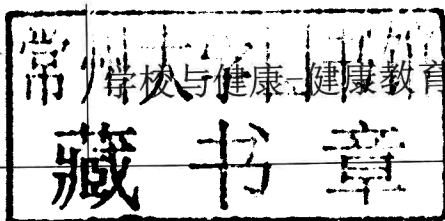 常州大学图书馆
学校与健康-健康教育
藏书章